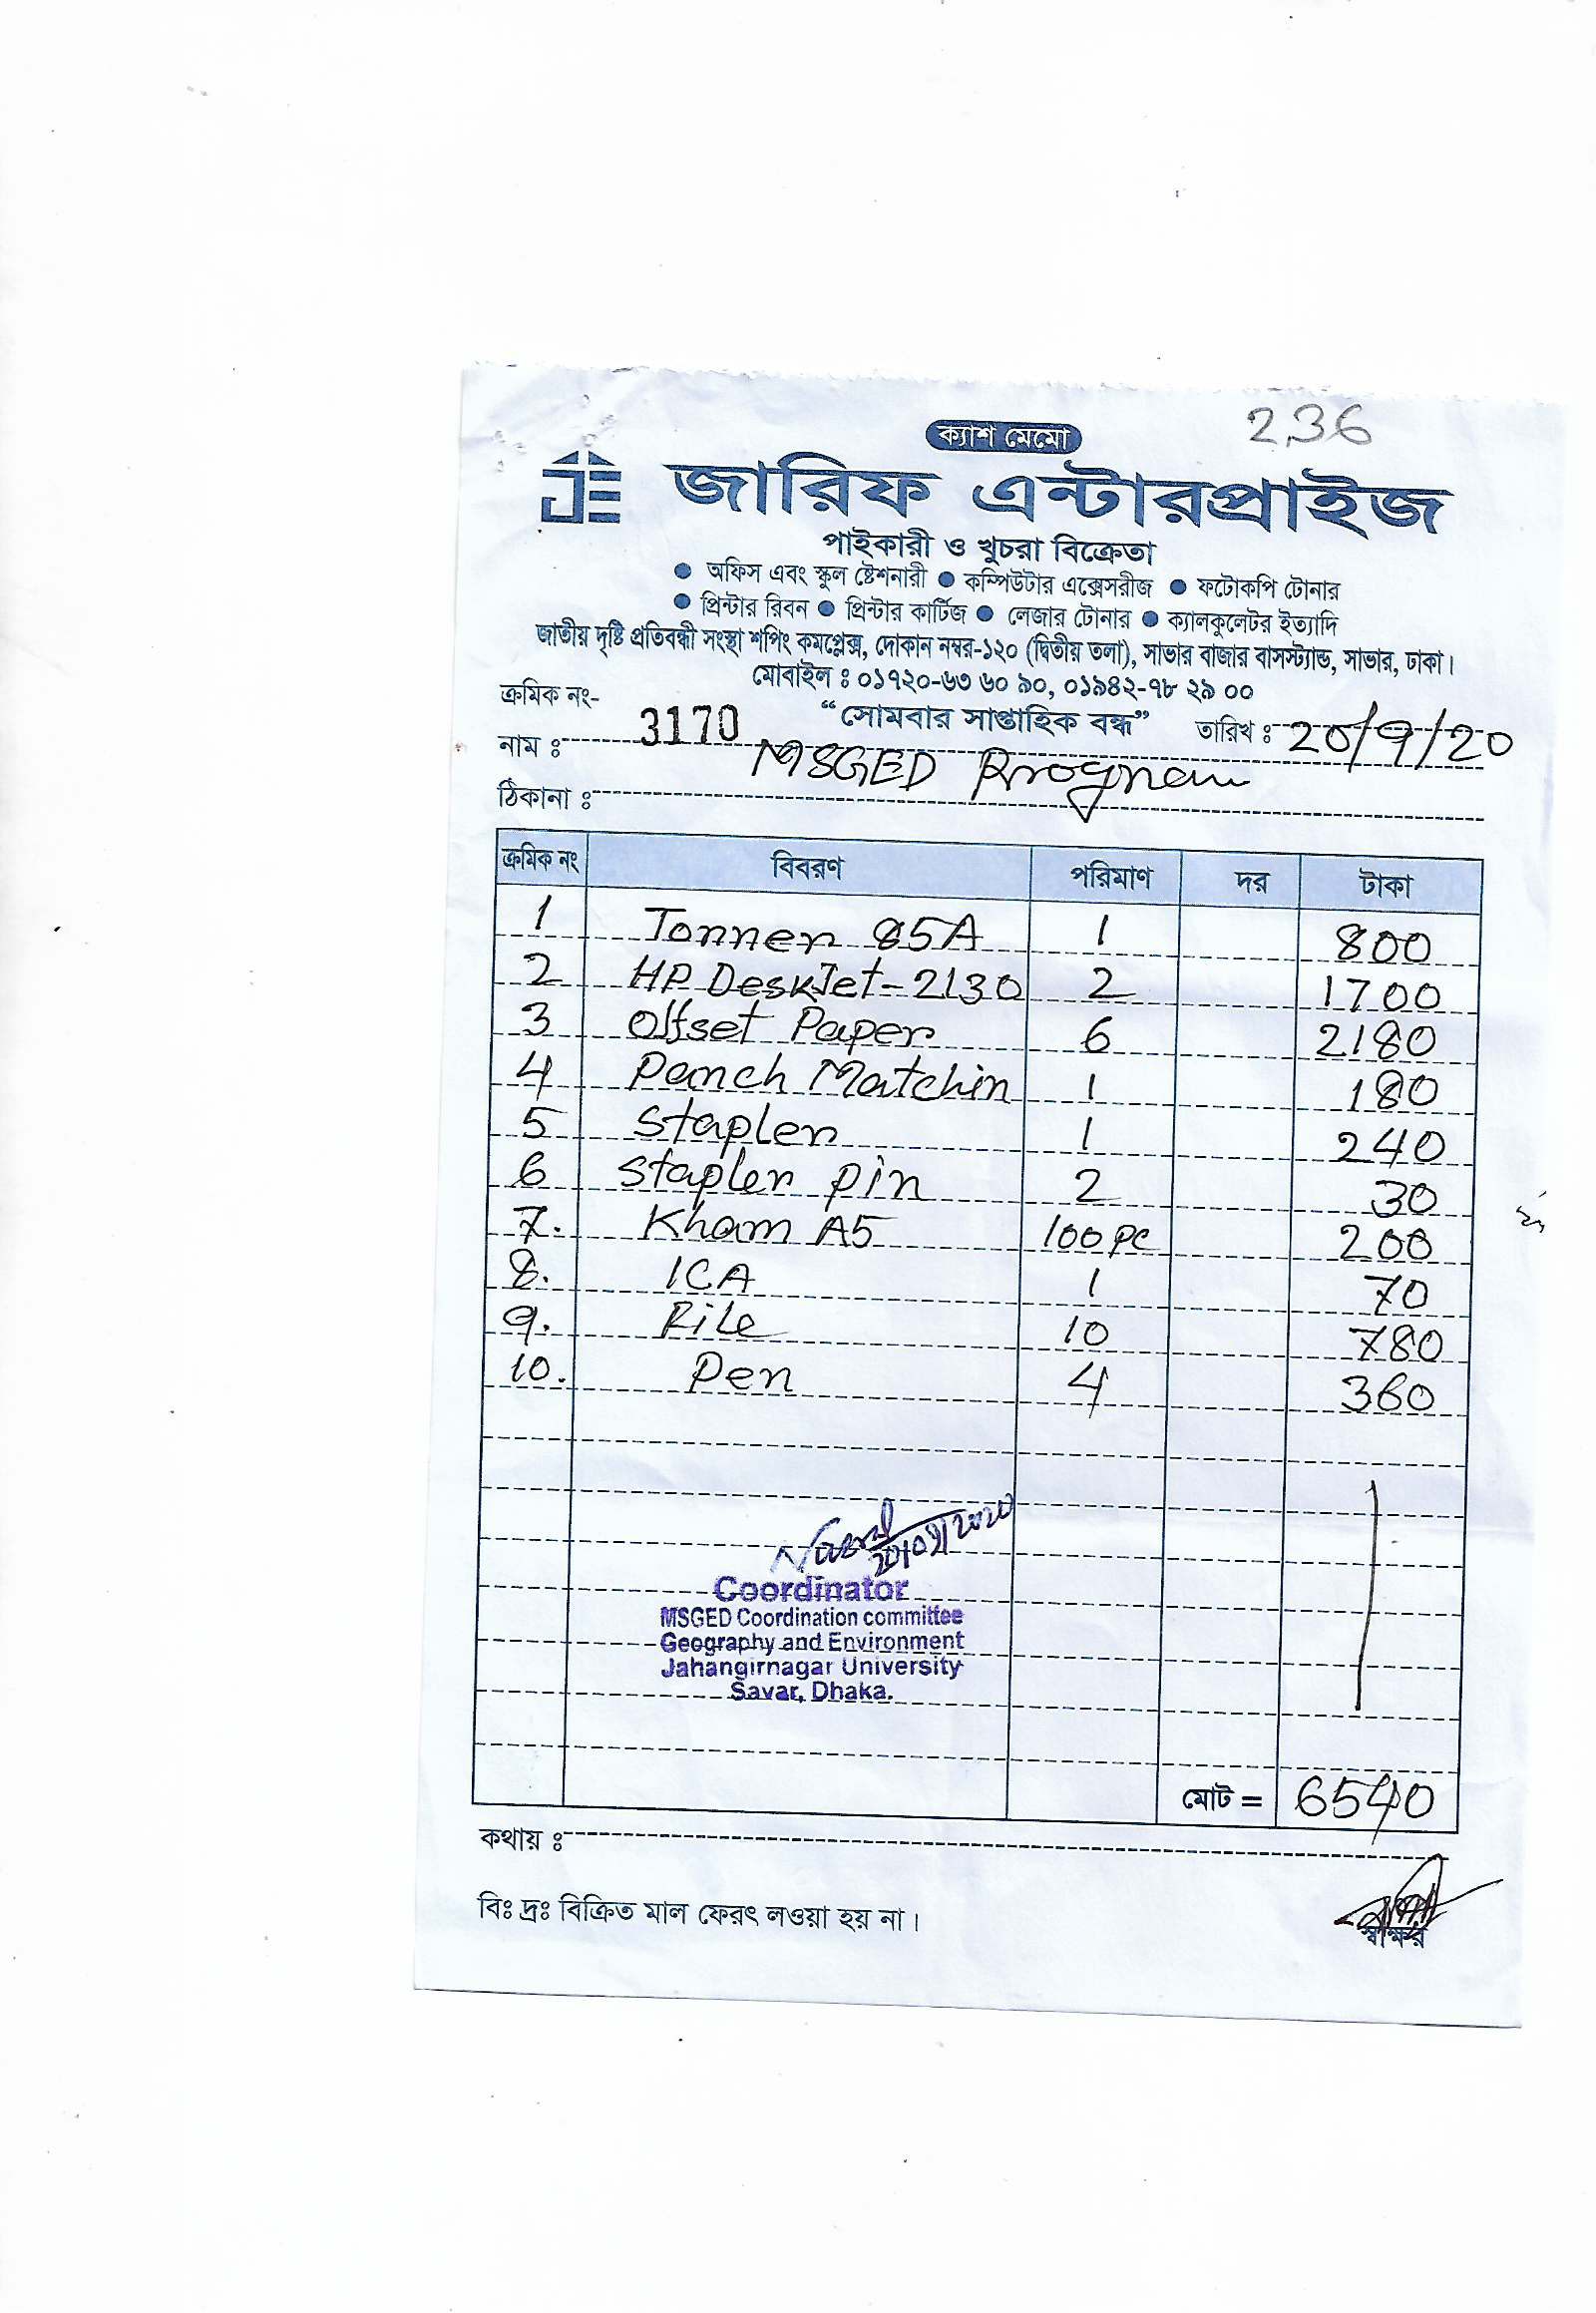 236
ক্যাশ মেমো
JE জারিফ এন্টারপ্রাইজ
পাইকারী ও খুচরা বিক্রেতা
● অফিস এবং স্কুল ষ্টেশনারী ● কম্পিউটার এক্সেসরীজ ● ফটোকপি টোনার
● প্রিন্টার রিবন ● প্রিন্টার কার্টিজ ● লেজার টোনার ● ক্যালকুলেটর ইত্যাদি
জাতীয় দৃষ্টি প্রতিবন্ধী সংস্থা শপিং কমপ্লেক্স, দোকান নম্বর-১২০ (দ্বিতীয় তলা), সাভার বাজার বাসস্ট্যান্ড, সাভার, ঢাকা।
মোবাইল ঃ ০১৭২০-৬৩ ৬০ ৯০, ০১৯৪২-৭৮ ২৯ ০০
ক্রমিক নং- 3170 “সোমবার সাপ্তাহিক বন্ধ” তারিখ ঃ 20/9/20
নাম ঃ MSGED Program
ঠিকানা ঃ
ক্রমিক নং বিবরণ পরিমাণ দর টাকা
1 Tonner 85A 1 800
2 HP DeskJet-2130 2 1700
3 Offset Paper 6 2180
4 Panch Matchin 1 180
5 Stapler 1 240
6 Stapler pin 2 30
7. Kham A5 100 PC 200
8. ICA 1 70
9. File 10 780
10. Pen 4 360
20/09/2020
Coordinator
MSGED Coordination committee
Geography and Environment
Jahangirnagar University
Savar, Dhaka.
মোট = 6540
কথায় ঃ
বিঃ দ্রঃ বিক্রিত মাল ফেরৎ লওয়া হয় না।
স্বাক্ষর